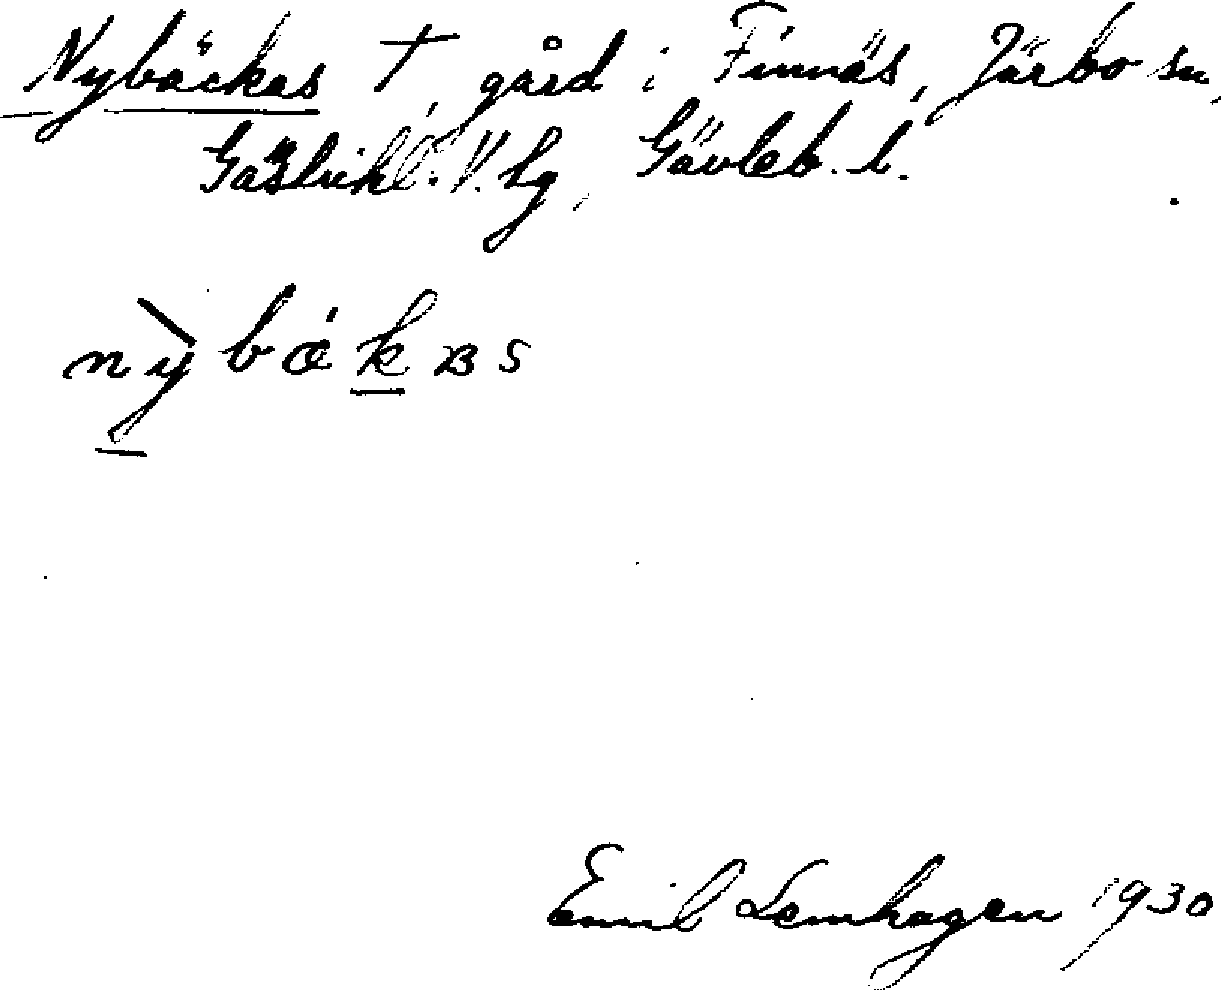 Nybäckas † gård i Finnäs, Järbo sn,
Gästrikl. V. hg, Gävleb. l.
nỳ̠bǽk̠ɐs
Emil Lemhagen 1930